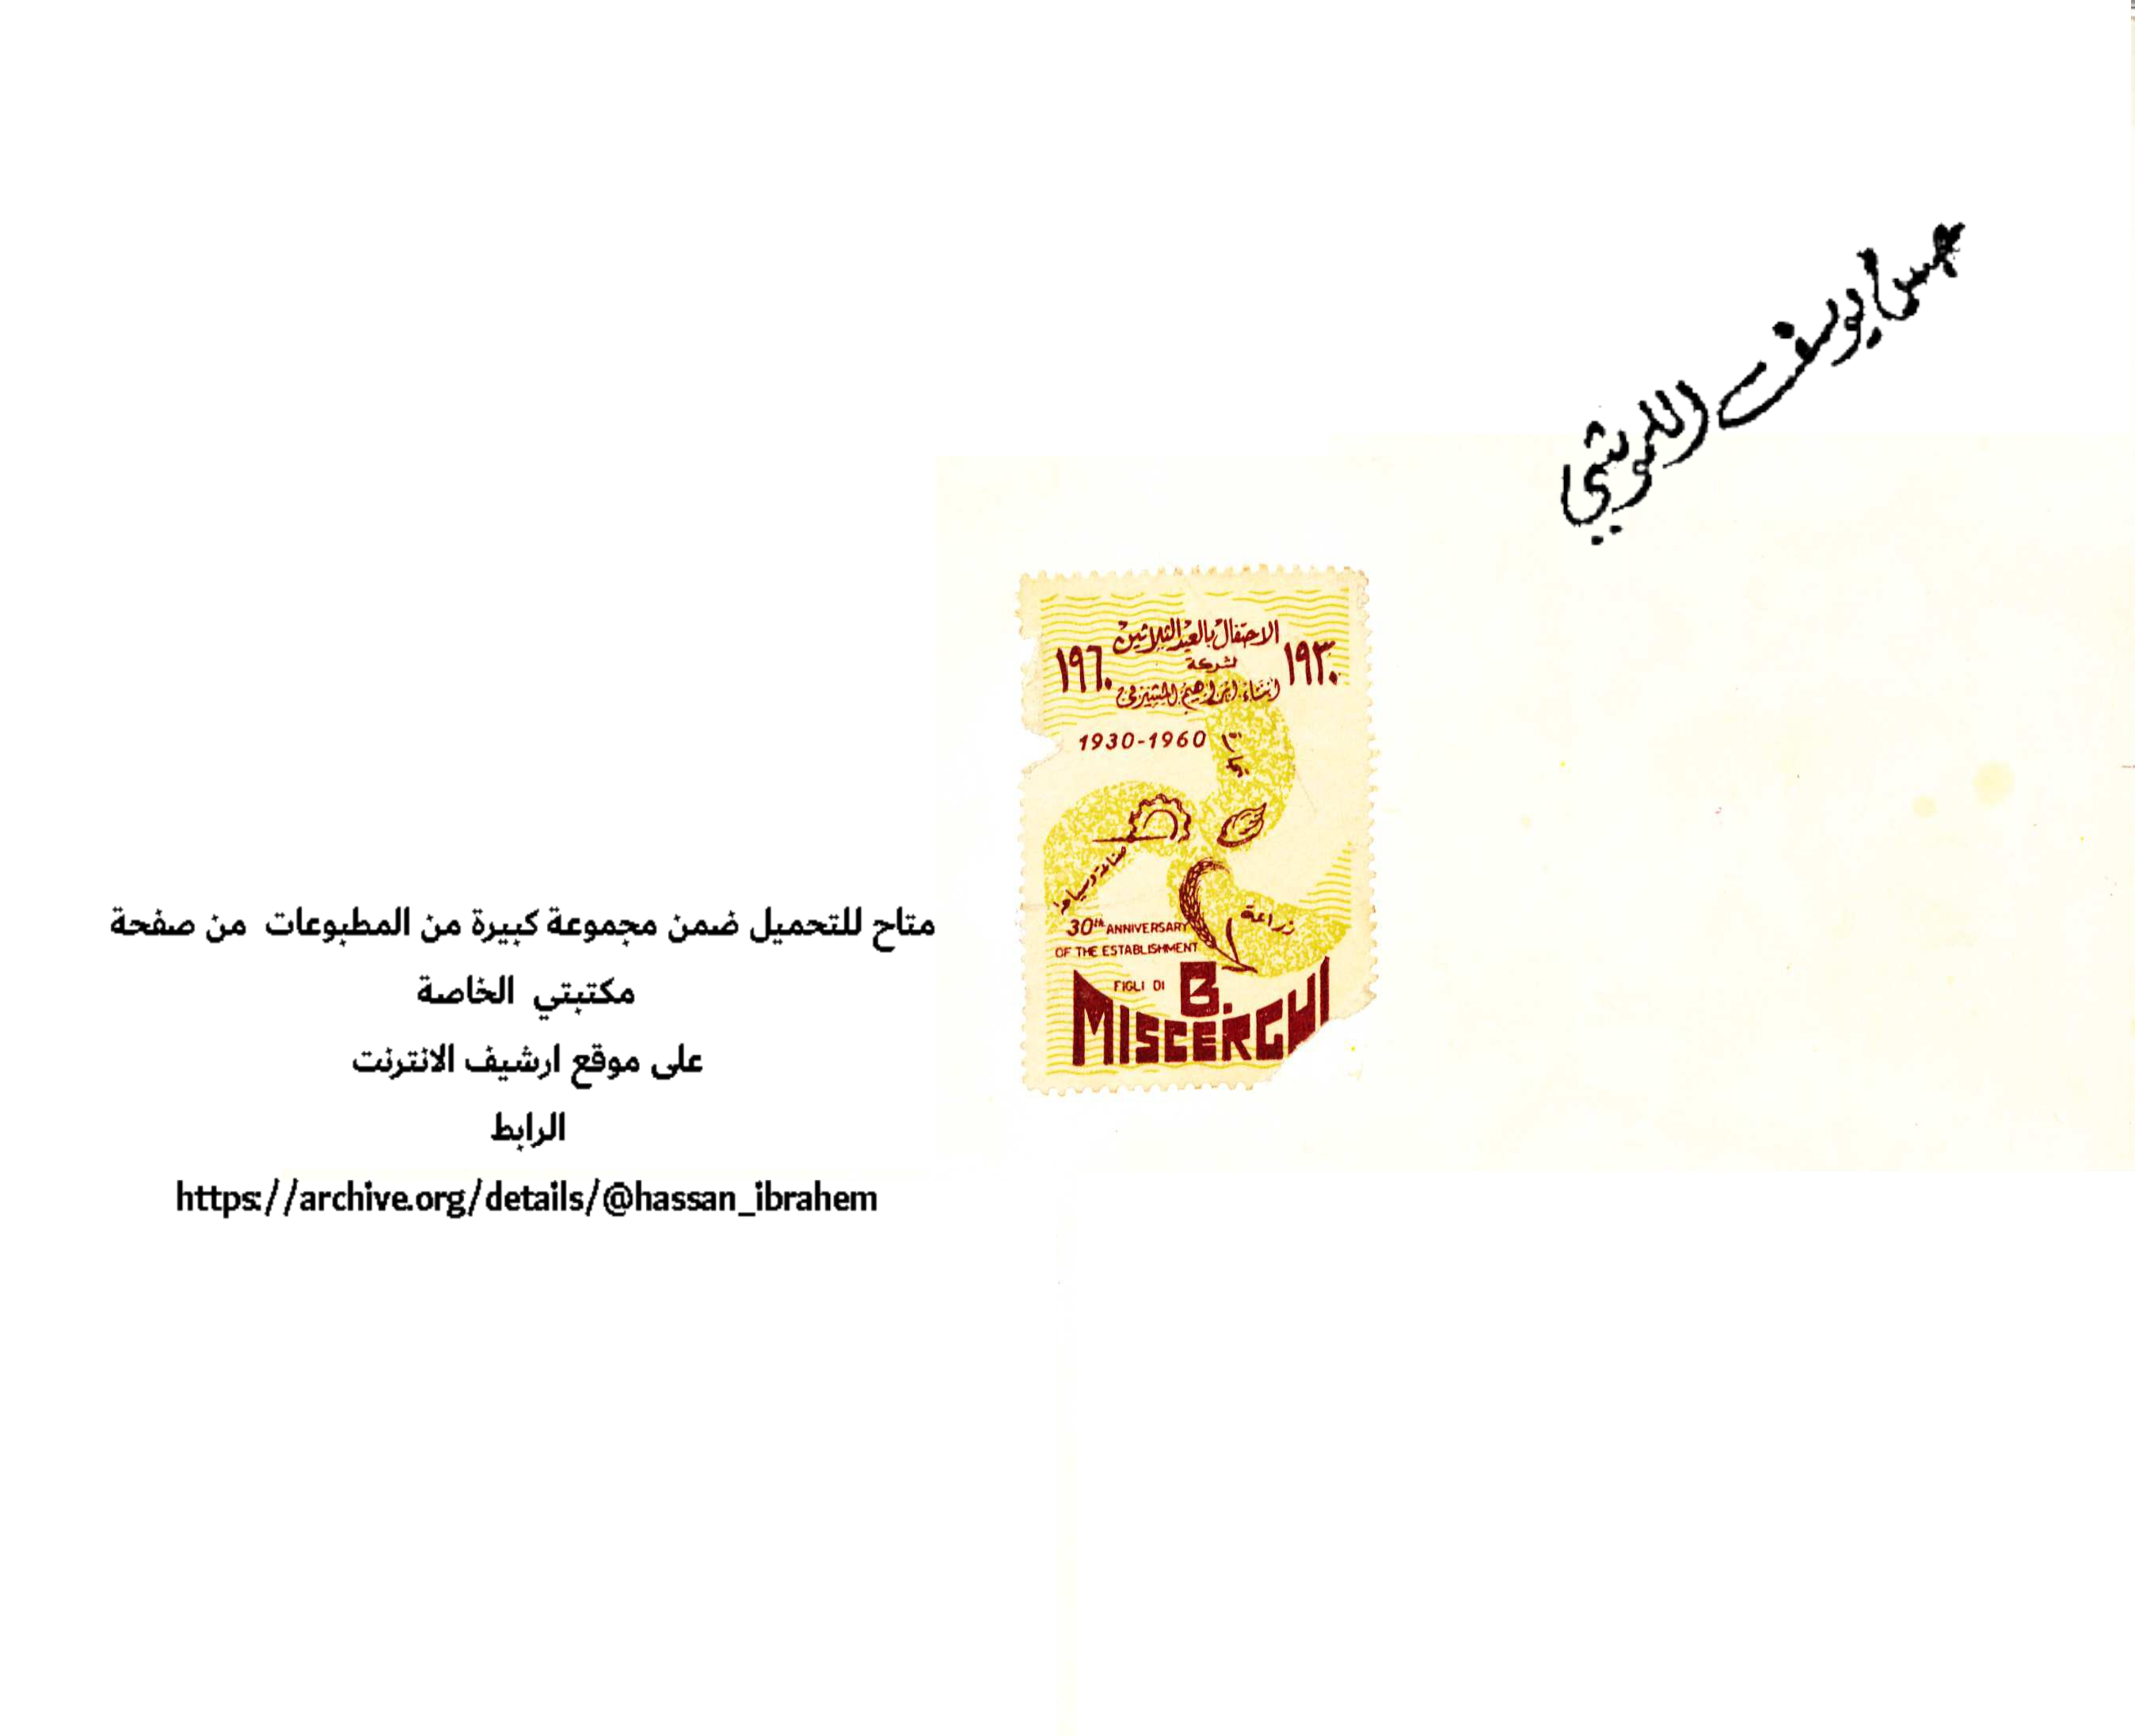 يوسف
الاحتفال بالعيد الثلاثين
١٩٣٠
١٩٦٠
لشركة
أبناء ابراهيم المشيرقي
1930-1960
صناعة وسياحة
زراعة
30th ANNIVERSARY
OF THE ESTABLISHMENT
FIGLI DI B.
MISCERGUI
متاح للتحميل ضمن مجموعة كبيرة من المطبوعات من صفحة
مكتبتي الخاصة
على موقع ارشيف الانترنت
الرابط
https://archive.org/details/@hassan_ibrahem